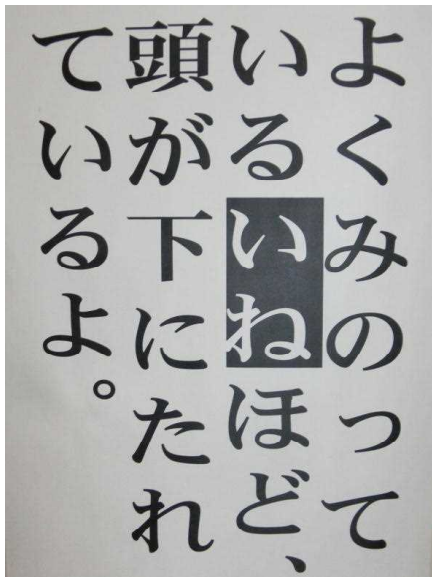 よくみのって
いるいねほど、
頭が下にたれ
ているよ。